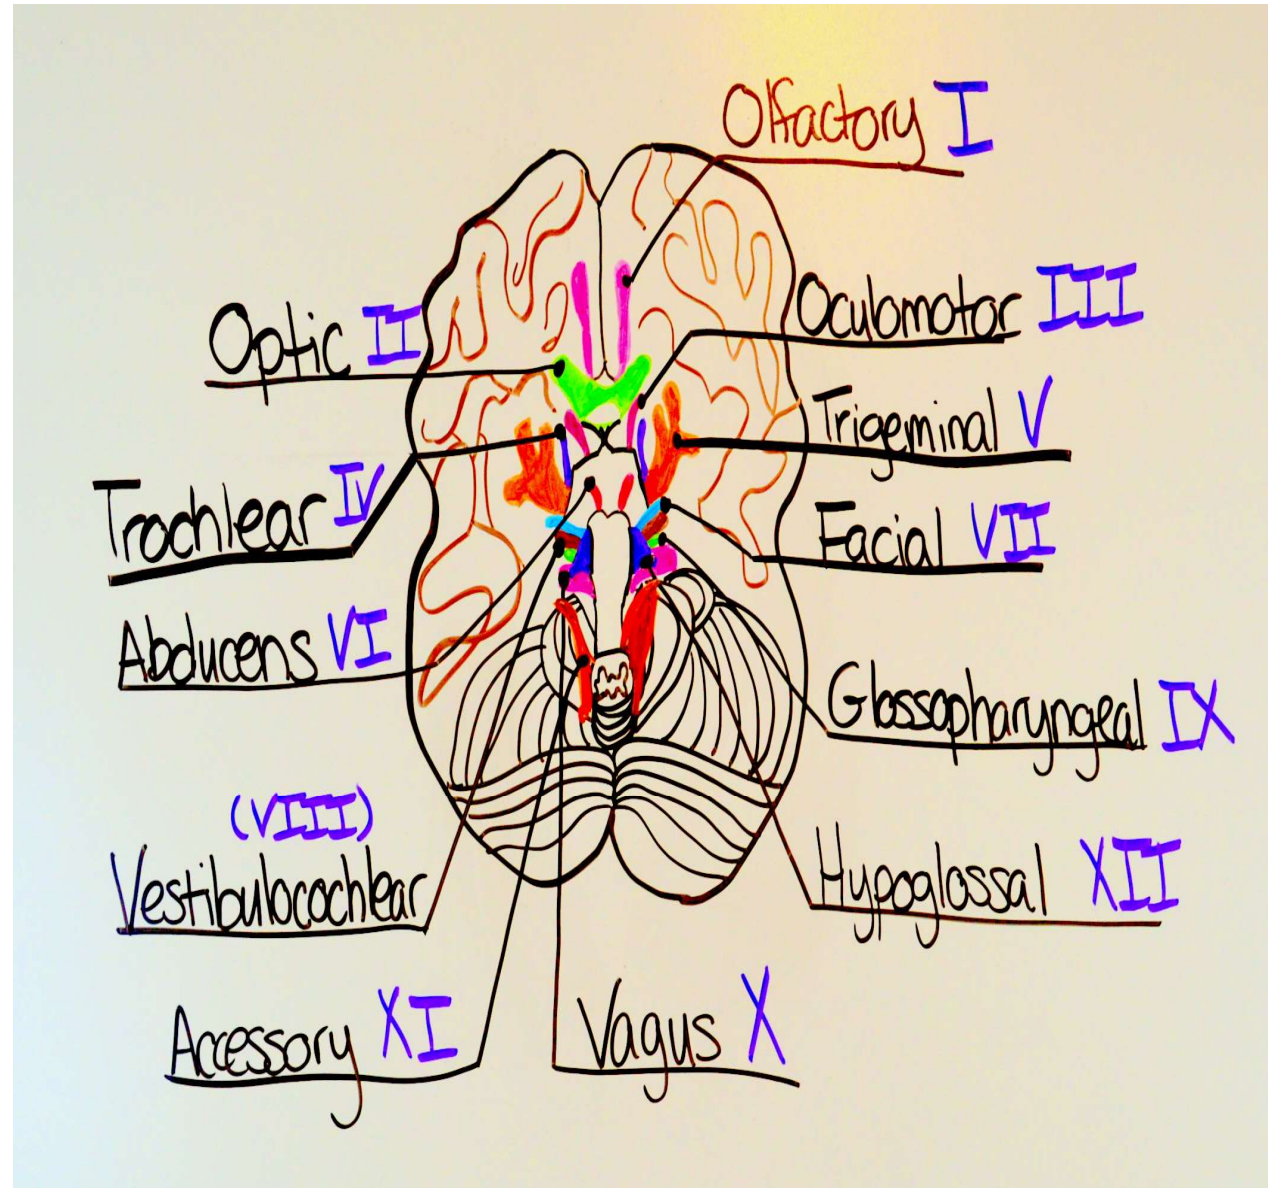 Olfactory I
Optic II
Oculomotor III
Trigeminal V
Trochlear IV
Facial VII
Abducens VI
Glossopharyngeal IX
(VIII)
Vestibulocochlear
Hypoglossal XII
Accessory XI
Vagus X